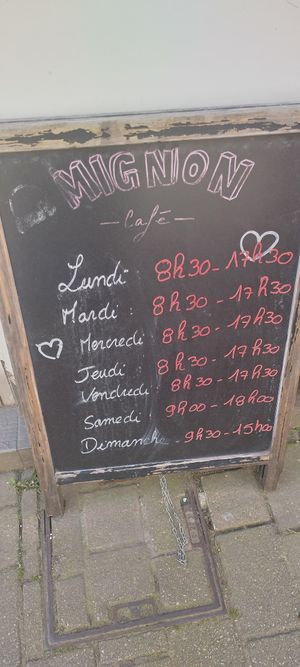 MIGNON
— Café —
Lundi : 8h30 - 17h30
Mardi : 8h30 - 17h30
Mercredi 8h30 - 17h30
Jeudi : 8h30 - 17h30
Vendredi 8h30 - 17h30
Samedi 9h00 - 18h00
Dimanche - 9h30 - 15h00